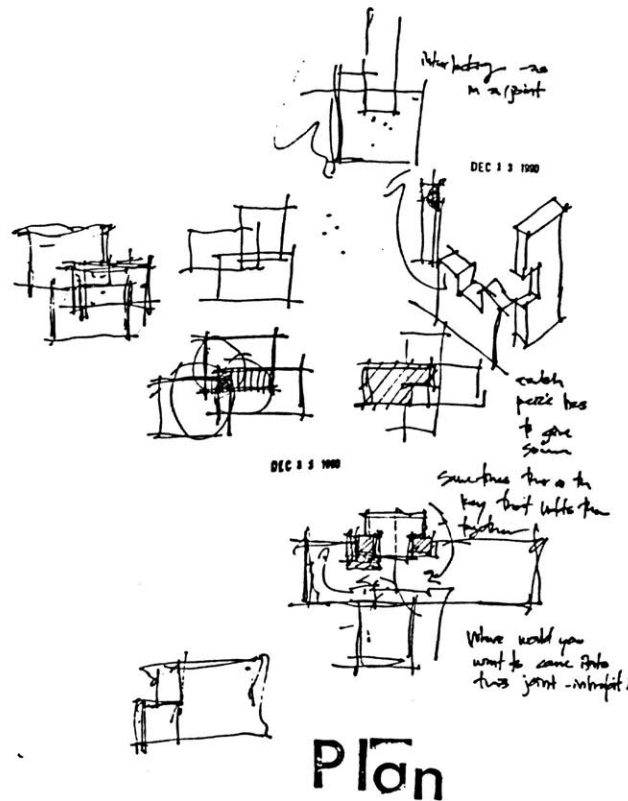 interlocking - as
in a joint
DEC 13 1990
catch
piece has
to give
some
DEC 13 1990
Sometimes there is the
key that the
together
Where would you
want to come into
this joint -
Plan